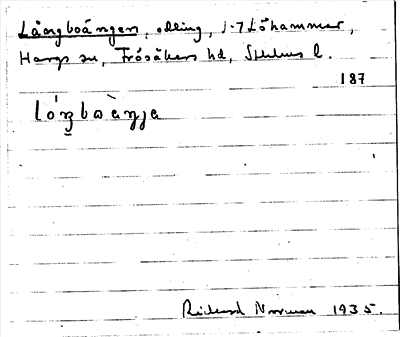 Långboängen, odling, J-7 Löhammar,
Hargs sn, Frösåkers hd, Sthlms l.
187
Richard Norrman 1935.